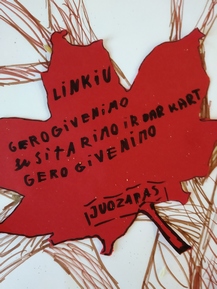 LINKIU
GEROGIVENIMO
SUSITARIMO IR DAR KART
GERO GIVENIMO
JUOZAPAS